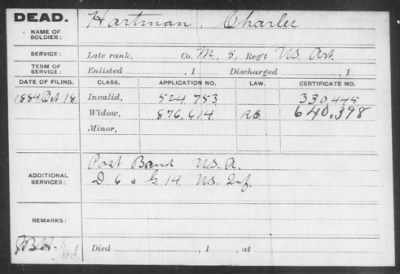 DEAD. Hartman, Charles
NAME OF SOLDIER:
SERVICE: Late rank, Co. M, 5, Reg't U.S. Art.
TERM OF SERVICE: Enlisted , 1 Discharged , 1
DATE OF FILING. CLASS. APPLICATION NO. LAW. CERTIFICATE NO.
1884 Oct 18 Invalid, 524,753 330,448
Widow, 876,614 640,398
Minor,
ADDITIONAL SERVICES: Post Band U.S.A.
D 6 & G 14, U.S. Inf.
REMARKS:
Died , 1 , at